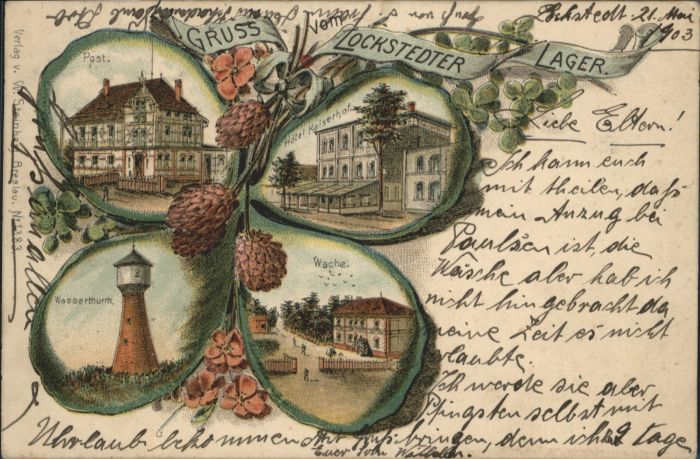 GRUSS vom LOCKSTEDTER LAGER.
Lockstedt 21. Mai 1903
Post.
Hôtel Kaiserhof
Wasserthurm,
Wache.
Verlag v. Breslau. No 1383
Liebe Eltern!
Ich kann euch
mit theilen, daß
mein Anzug bei
Paulsen ist, die
Wäsche aber hab ich
nicht hingebracht da
meine Zeit es nicht
erlaubte,
Ich werde sie aber
Pfingsten selbst mit
bringen, denn ich 9 tage
Uhrlaub bekommen
Euer Sohn Wilhelm.